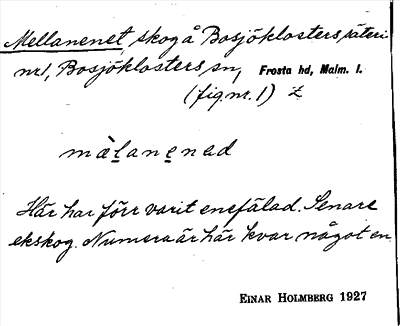 Mellanenet, skog å Bosjöklosters säteri
nr 1, Bosjöklosters sn, Frosta hd, Malm. l.
(fig. nr. 1)
mæ̀lanenad
Här har förr varit enefälad. Senare
ekskog. Numera är här kvar något en.
EINAR HOLMBERG 1927